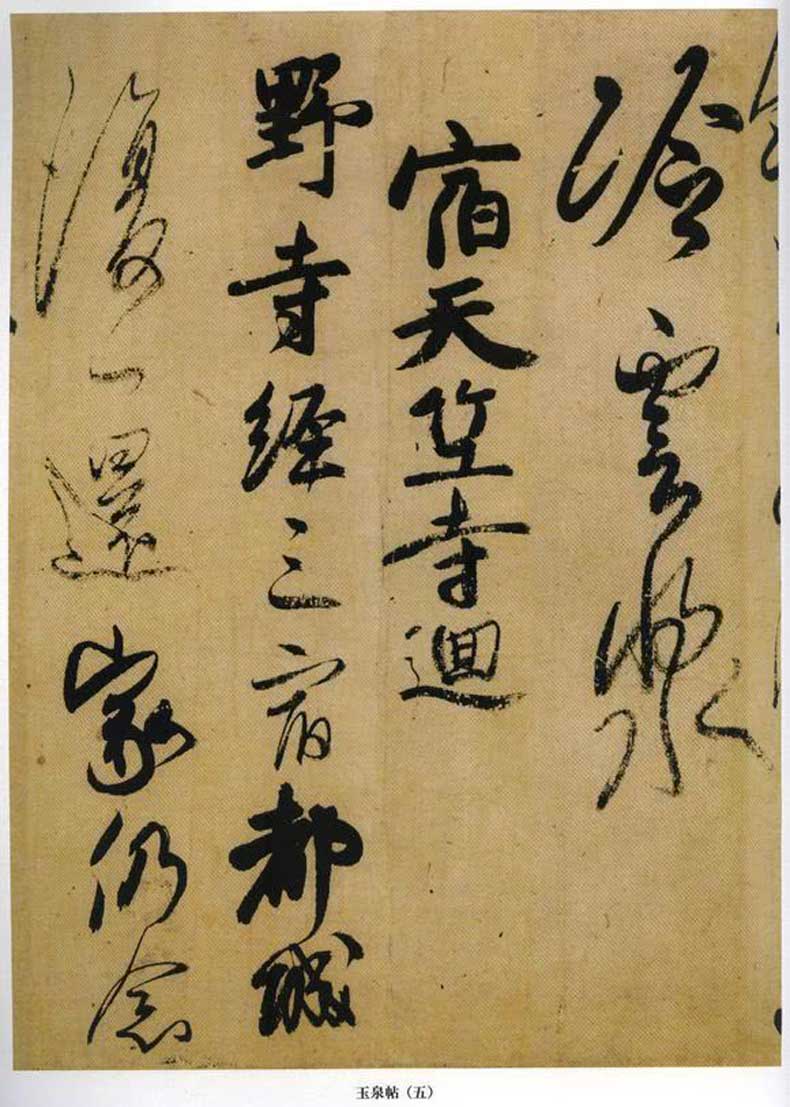 冷雲漿
宿天竺寺迴
野寺經三宿都城
復一還家仍念
玉泉帖（五）